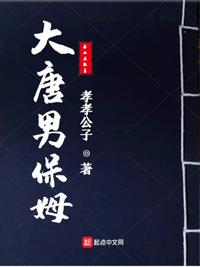 大唐男保姆
孝孝公子
◎
著
起点中文网